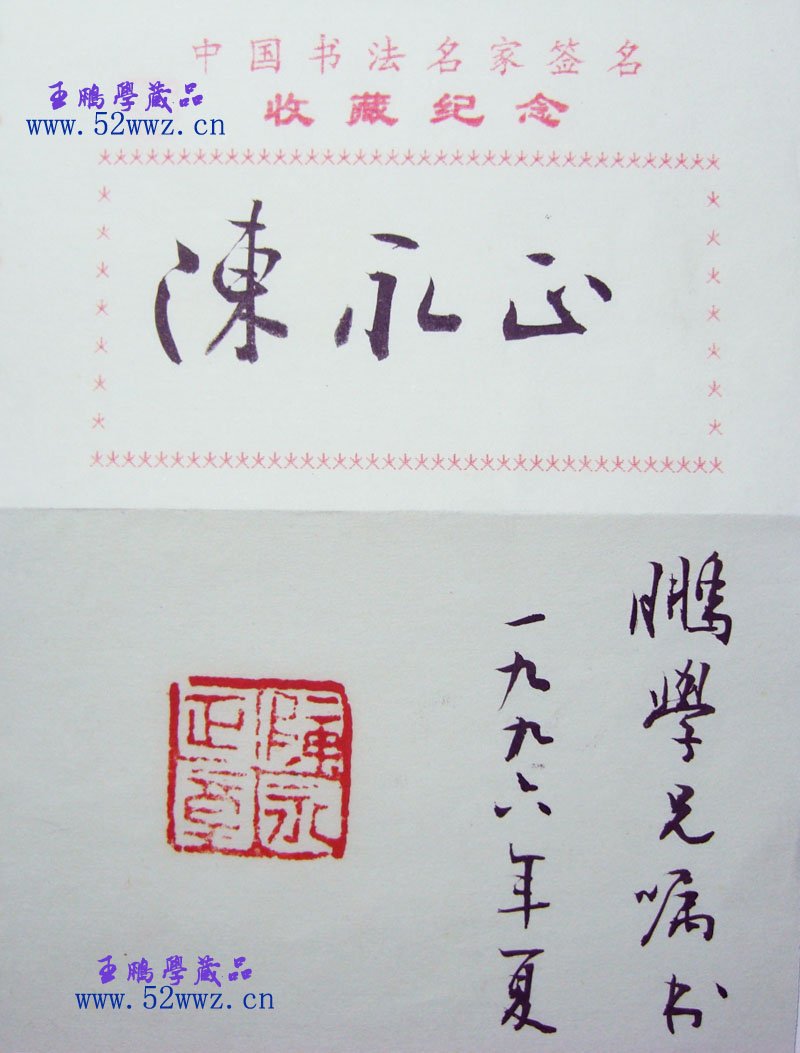 中国书法名家签名
王鵬學藏品
收藏纪念
www.52wwz.cn
陳永正
鵬學兄嘱书
一九九六年夏
陳永
正章
王鵬學藏品
www.52wwz.cn